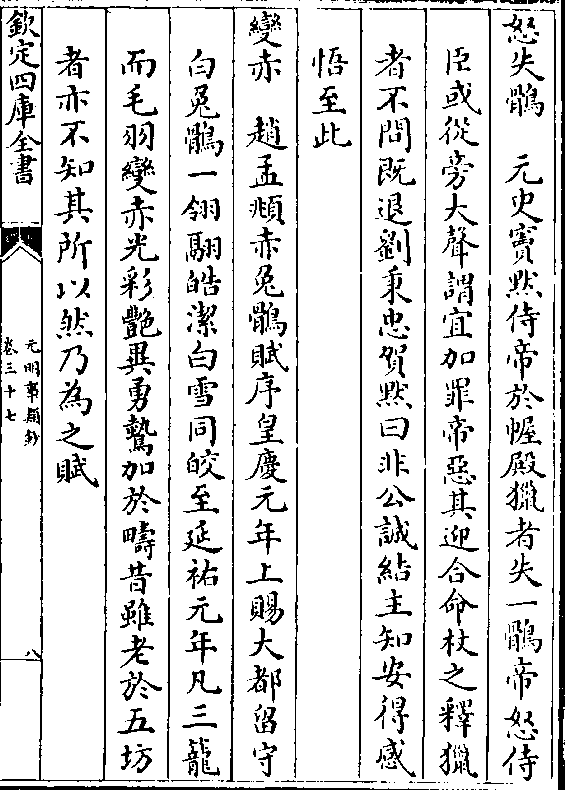 怒失鶻　元史竇黙侍帝於幄殿獵者失一鶻帝怒侍
臣或從旁大聲謂宜加罪帝惡其迎合命杖之釋獵
者不問既退劉秉忠賀黙曰非公誠結主知安得感
悟至此
變赤　趙孟頫赤兔鶻賦序皇慶元年上賜大都留守
白兔鶻一翎翮皓潔白雪同皎至延祐元年凡三籠
而毛羽變赤光彩艷異勇鷙加於疇昔雖老於五坊
者亦不知其所以然乃為之賦
欽定四庫全書
元明事類鈔
卷三十七
八